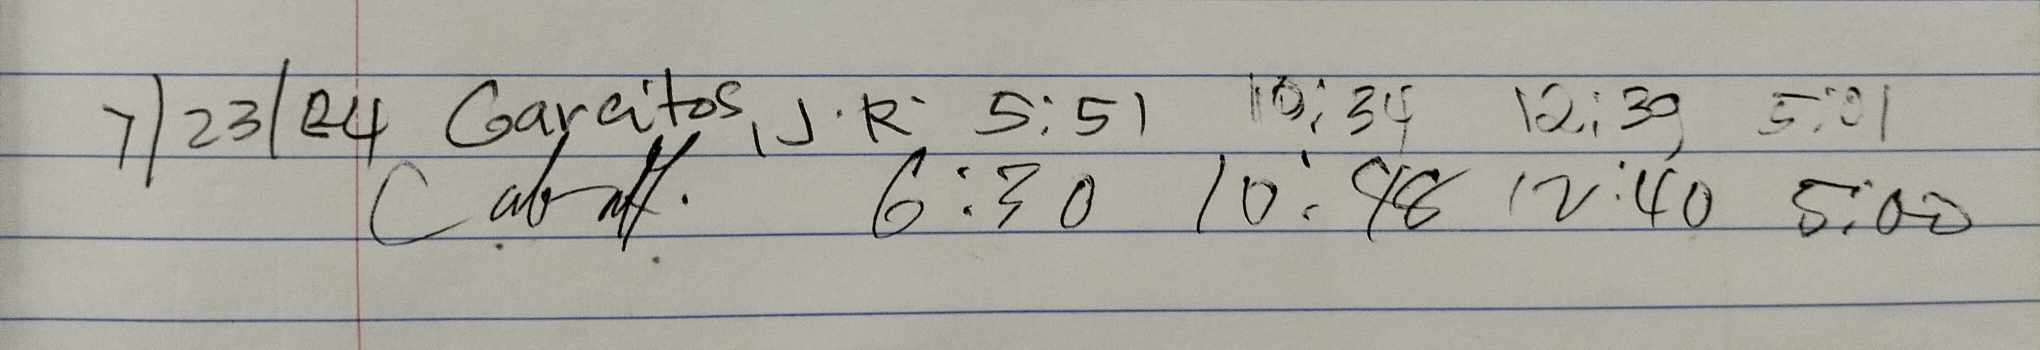 7/23/24 Garcitos, J.R. 5:51 10:34 12:39 5:01
6:30 10:48 12:40 5:00